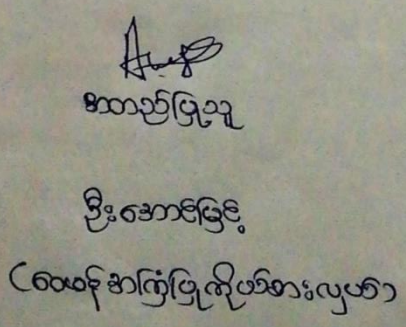 အတည်ပြုသူ
ဦးအောင်မြင့်
(ဝေဖန်အကြံပြုကိုယ်စားလှယ်)